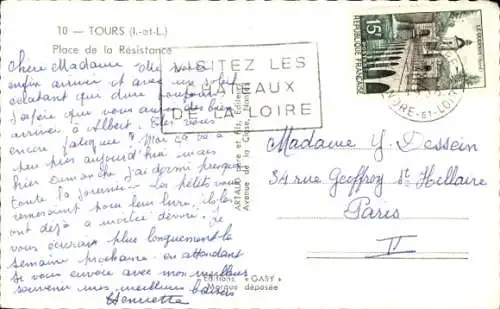 10 — TOURS (I.-et-L.)
Place de la Résistance
VISITEZ LES
CHATEAUX
DE LA LOIRE
15F
REPUBLIQUE FRANÇAISE
INDRE-ET-LOIRE
Chère Madame. Me voici
enfin arrivée et avec un soleil
éclatant que dure toujours.
J'espère que vous avez dès bien
arriver à Albert. Êtes vous
encore fatiguée? Moi ça va à
peu près aujourd'hui mais
hier Dimanche j'ai dormi presque
toute la journée. Les petits vous
remercient pour leur livre, ils les
ont déjà à moitié dévoré. Je
vous écrirai plus longuement la
semaine prochaine. en attendant
Je vous envoie avec mon meilleur
souvenir mes meilleurs baisers
Henriette
Madame Y. Dessein
34 rue Geoffroy St Hillaire
Paris
V
Editions "GABY"
Marque déposée
ARTAUD Editeurs
Avenue de la Close, Nantes